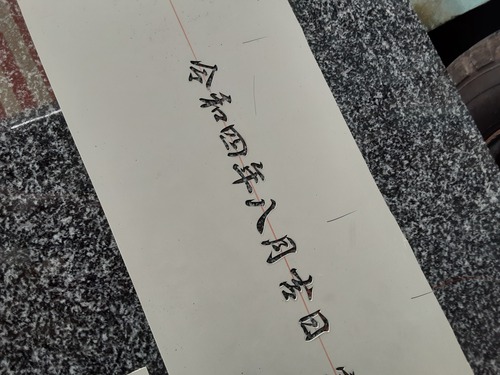 令和四年八月吉日